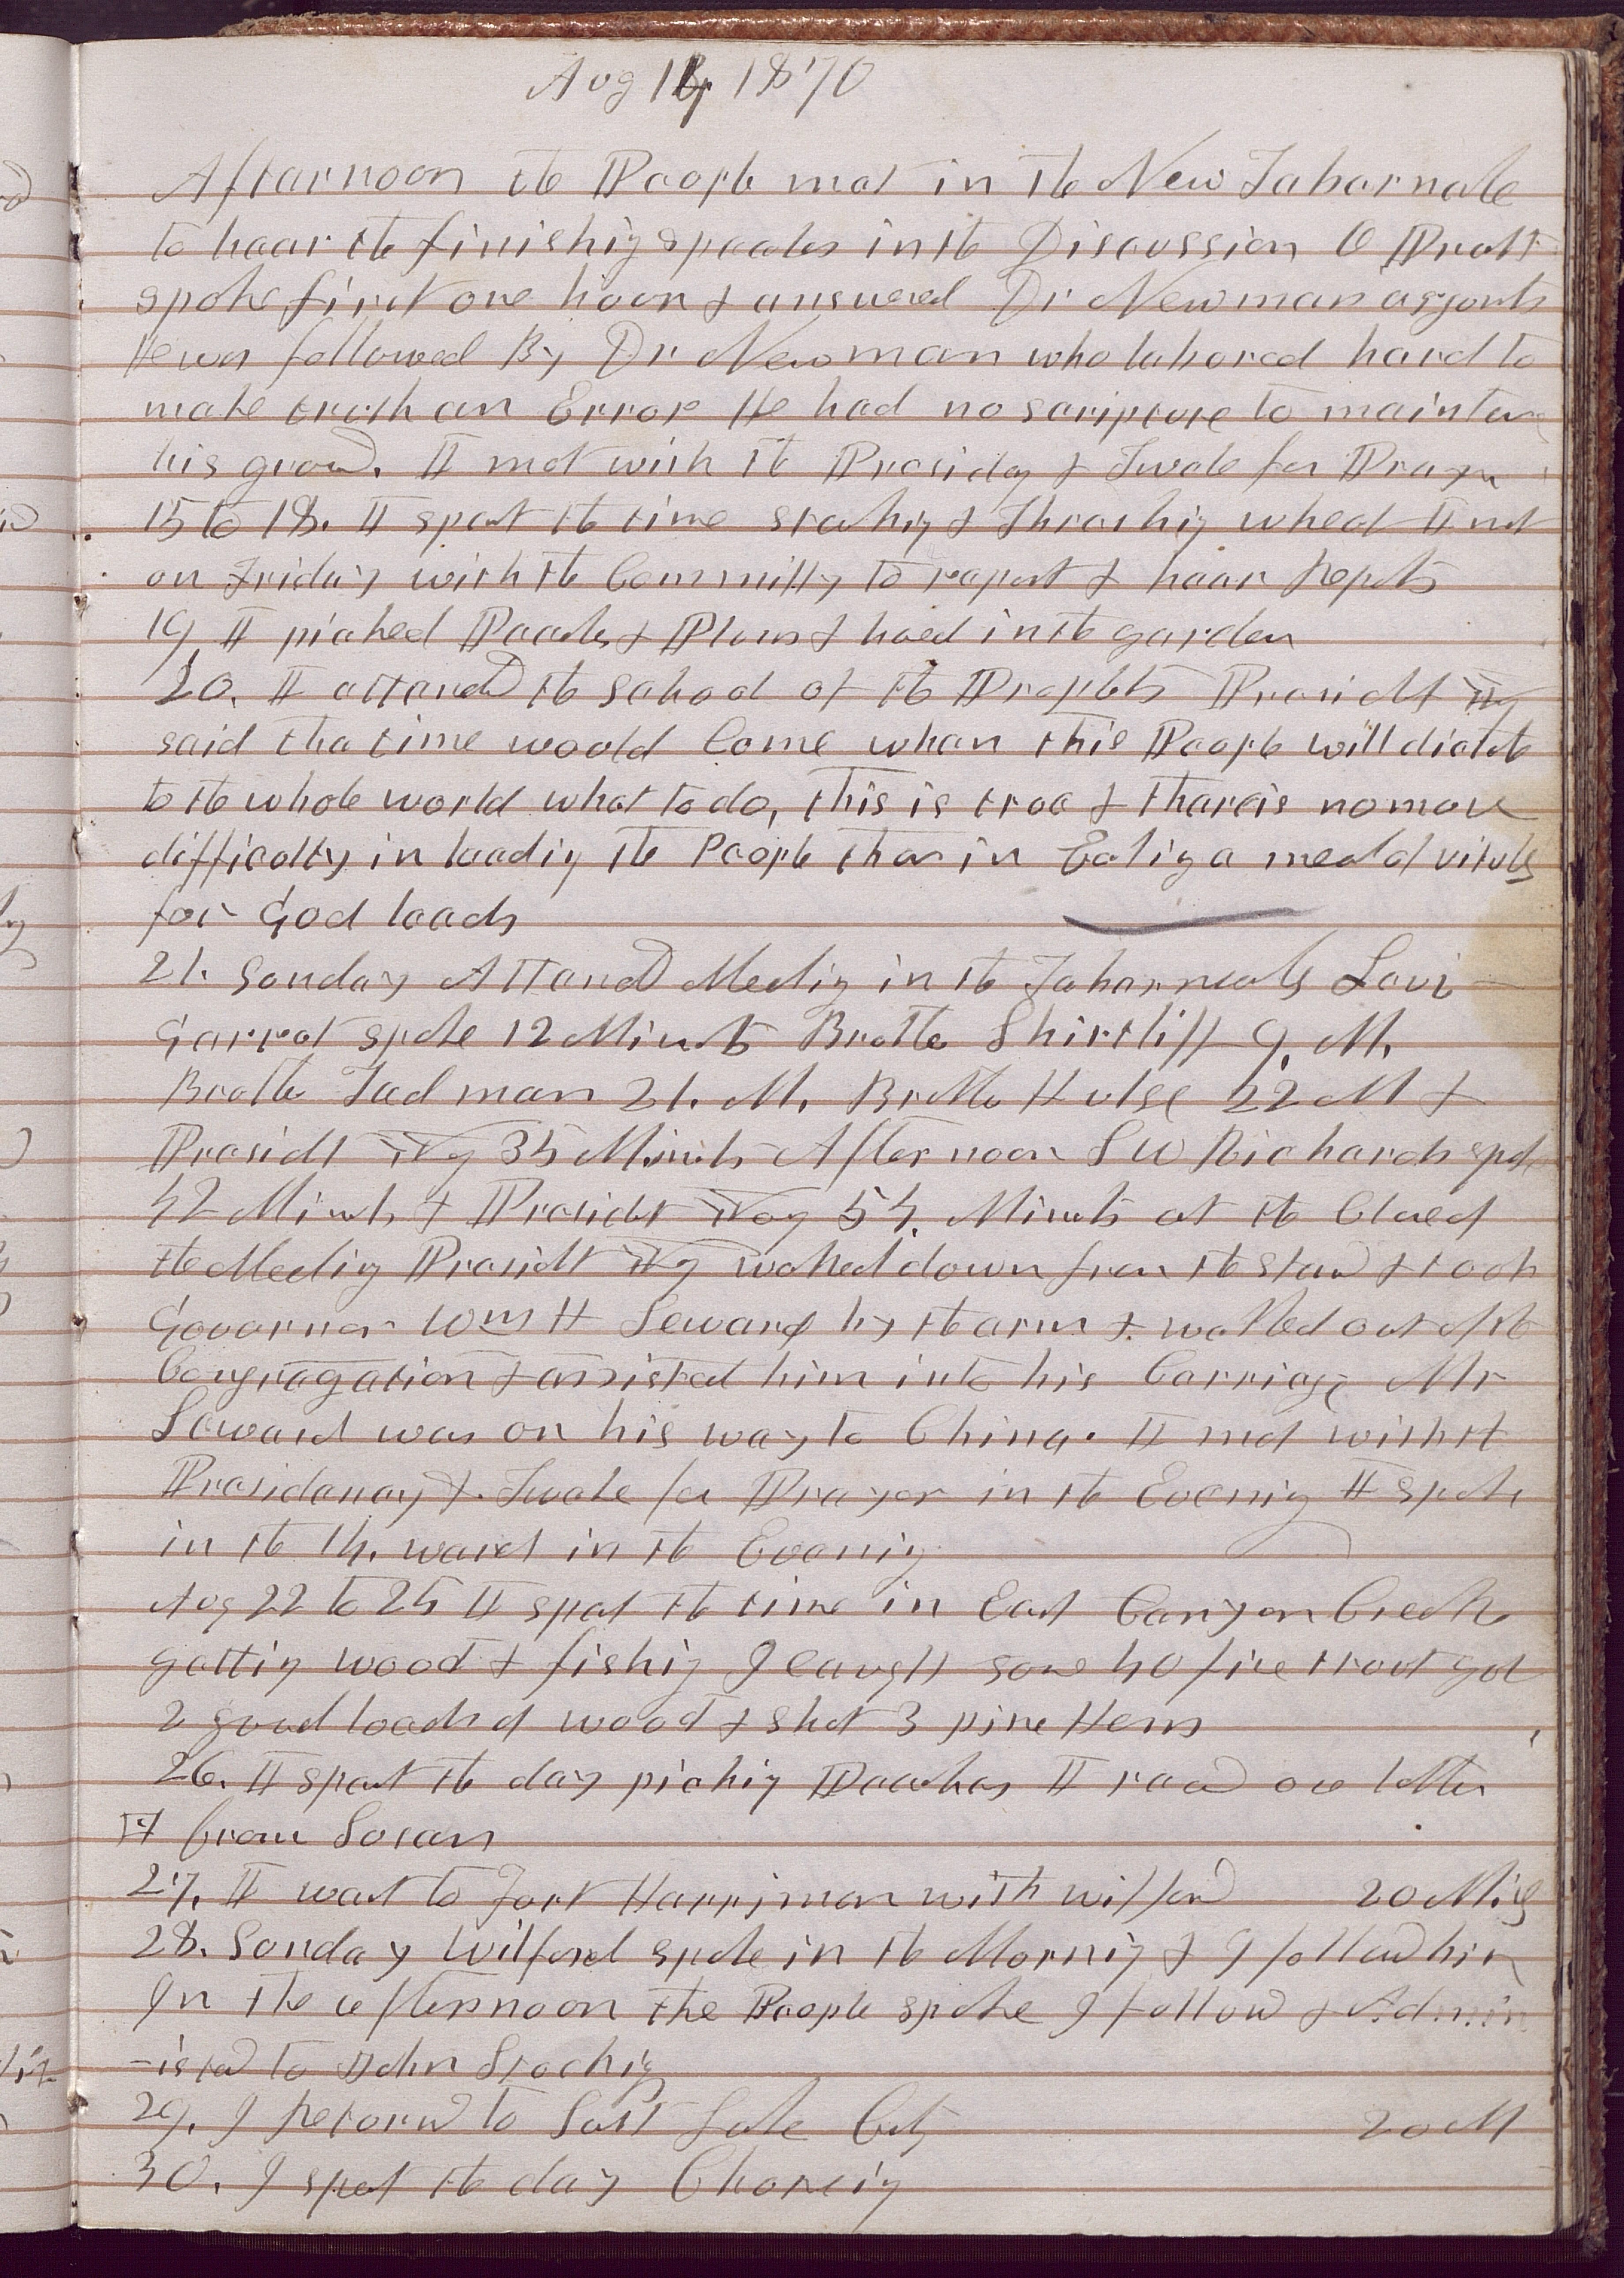 Aug 14, 1870
Afternoon the People met in the New Tabernacle
to hear the finishing speeches in the Discussion O Pratt
spoke first one hour & answered Dr Newman argumts
He was followed By Dr Newman who labored hard to
make truth an Error He had no scripture to maintain
his ground. I met with the Presidcy & Twelve for Prayer
15 to 18. I spent the time stacking & Thrashing wheat I met
on Friday with the Committy to report & hear Repots
19 I picked Peaches & Plums & hoed in the garden
20. I attend the school of the Prophets Presidt Young
said the time would Come when this People will dictate
to the whole world what to do, this is true & there is no more
difficulty in leading the People than in Eating a meal of vituls
for God leads
21. Sunday Attend Meeting in the Tabernacle Levi
Garret spoke 12 Minuts Brother Shirtliff 9. M.
Brother Tadman 21. M. Brother Hulse 22 M &
Presidt Young 35 Minuts Afternoon S W Richards spoke
42 Minuts & Presidet Young 54. Minuts at the Close of
the Meeting Presidt Young walked down from the stand & took
Governor Wm H Seward by the arm & walked out of the
Congregation & assisted him into his Carriage Mr
Seward was on his way to China. I met with the
Presidency & Twelve for Prayer in the Evening I spoke
in the 14. ward in the Evening
Aug 22 to 25 I spent the time in East Canyon Creek
getting wood & fishing I caught some 40 fine trout got
2 good loads of wood & shot 3 pine Hens
26. I spent the day picking Peaches I recd one letter
from Susan
27. I went to Fort Harriman with Wilford 20 Mils
28. Sunday Wilford spoke in the Morning & I followed him
In the afternoon the People spoke I follow & Admin
-isted to John Stocking
29. I Returnd to Salt Lake City 20 M
30. I spent the day Choreing